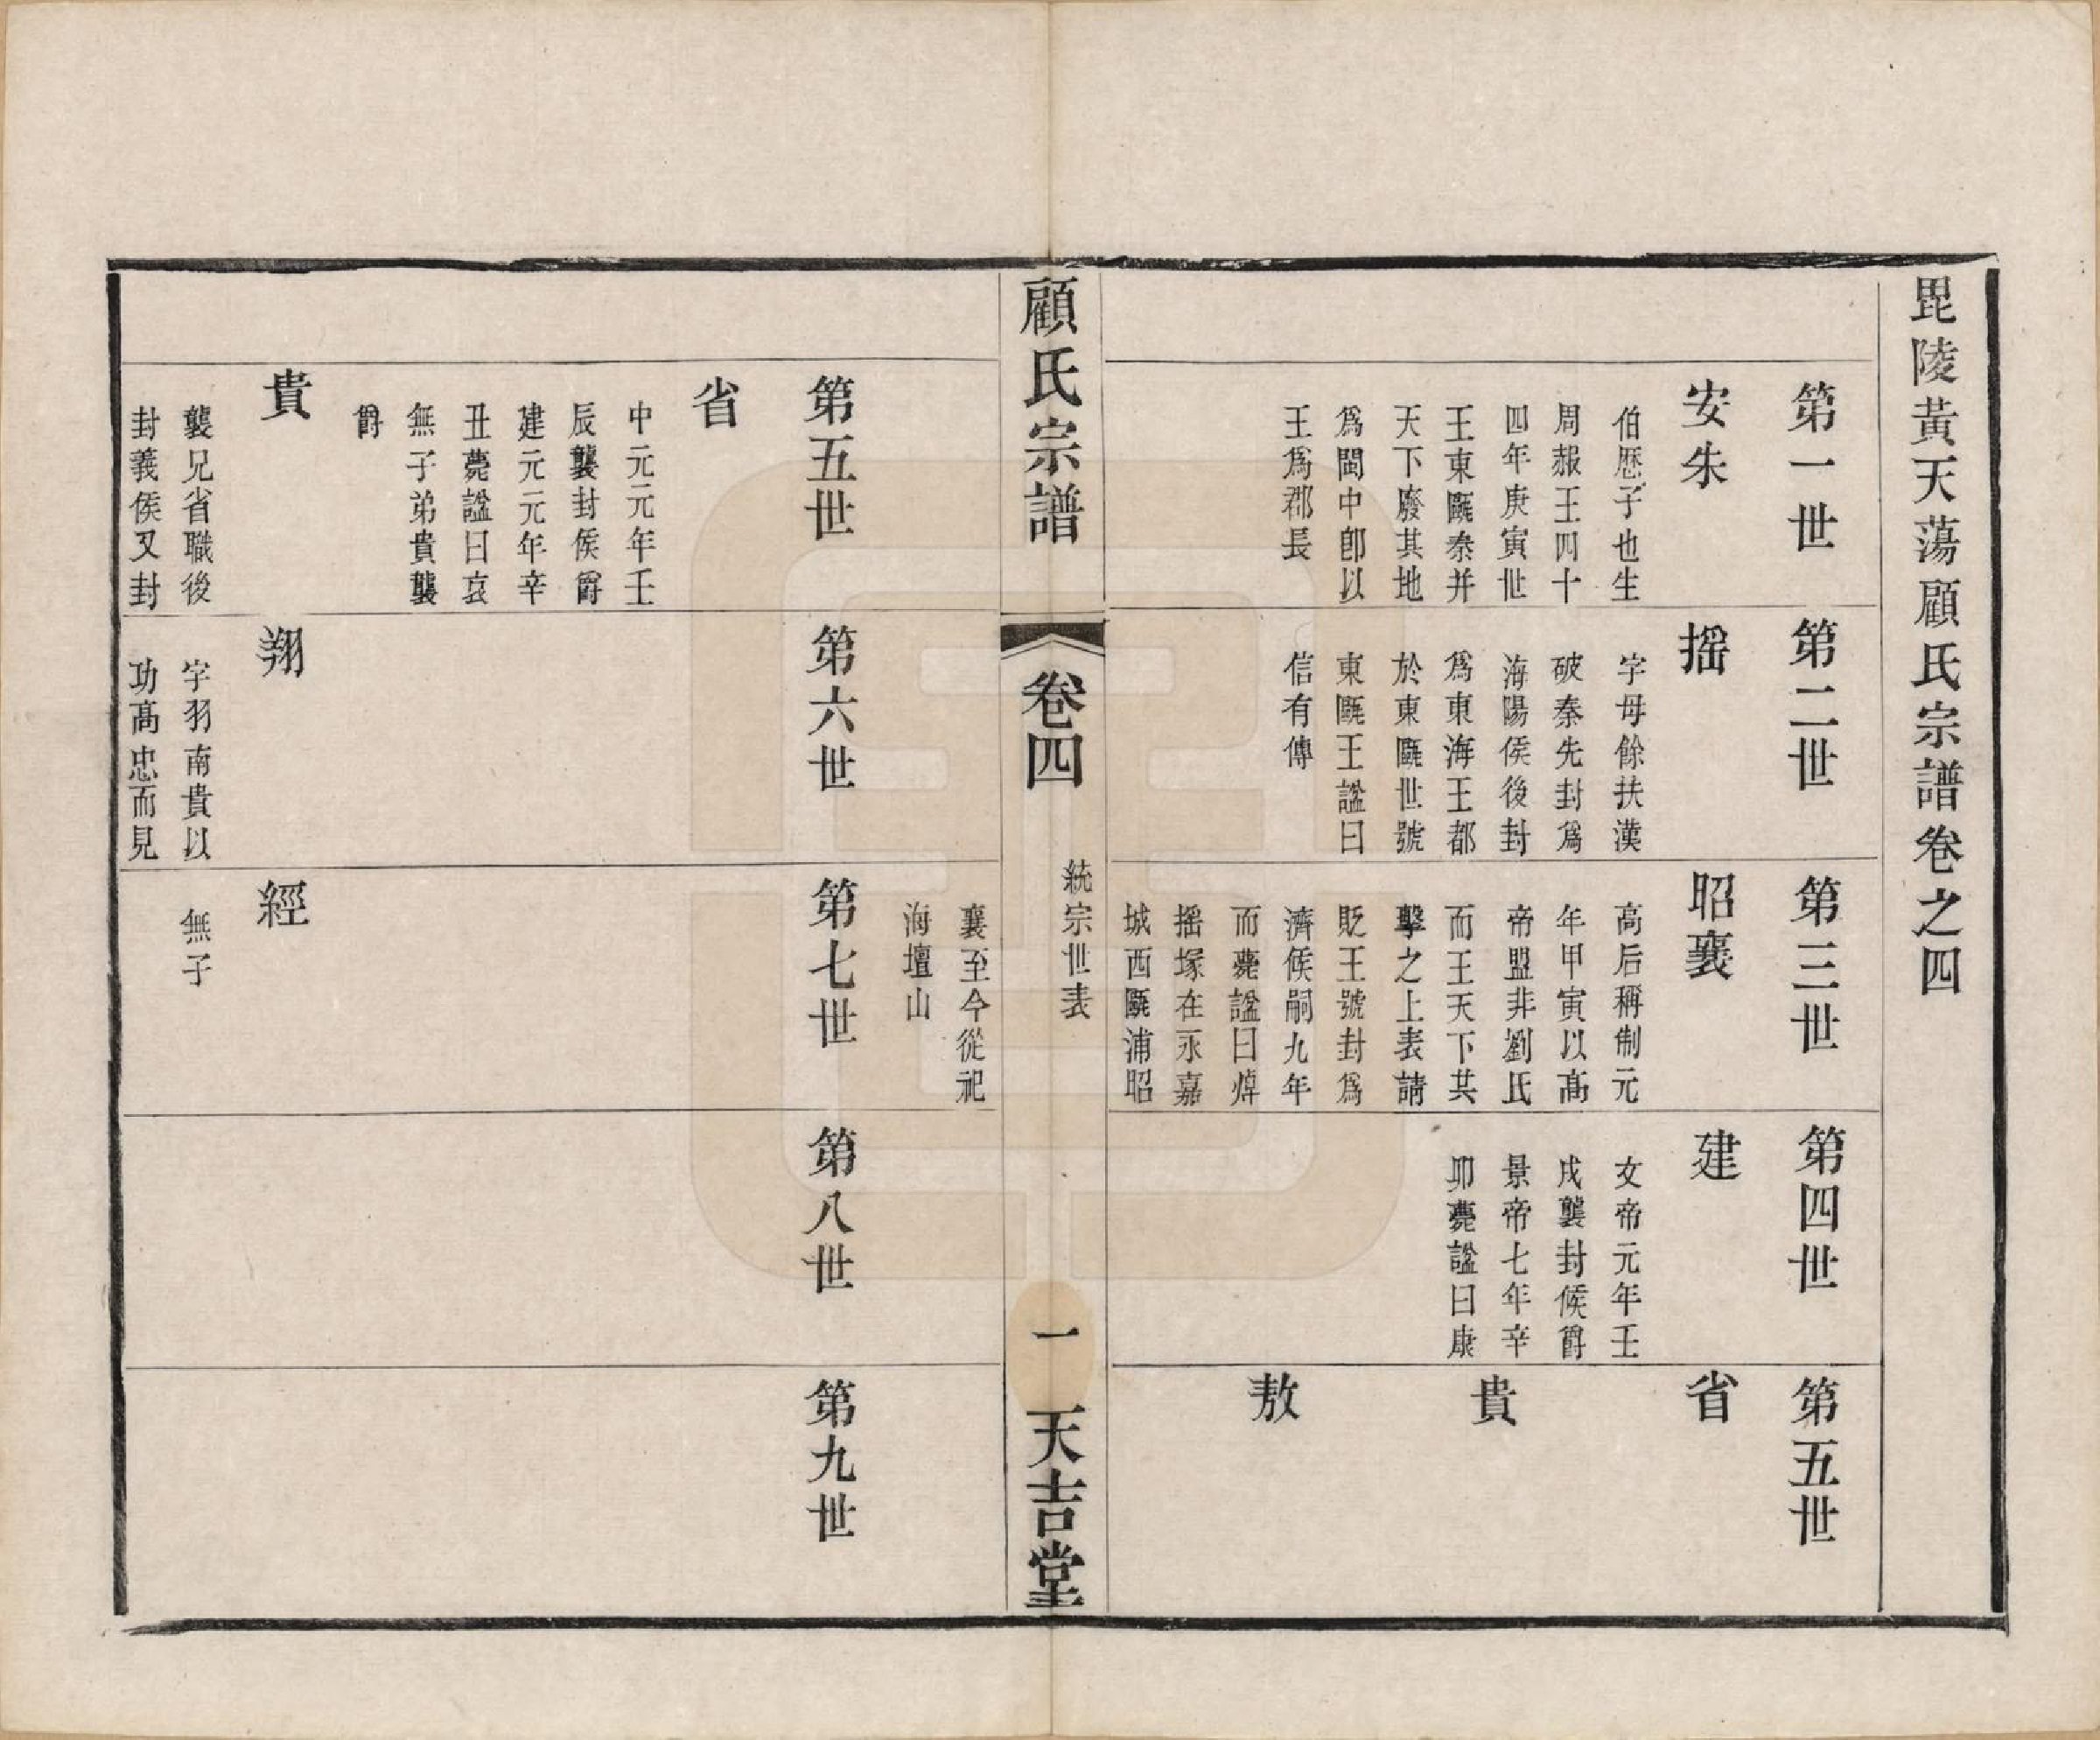 毘陵黃天蕩顧氏宗譜卷之四
第一世
安朱
伯歷子也生
周赧王四十
四年庚寅世
王東甌秦并
天下廢其地
爲閩中郎以
王爲郡長
第二世
摇
字母餘扶漢
破秦先封爲
海陽侯後封
爲東海王都
於東甌世號
東甌王謚曰
信有傳
第三世
昭襄
高后稱制元
年甲寅以高
帝盟非劉氏
而王天下共
擊之上表請
貶王號封爲
濟侯嗣九年
而薨謚曰焯
摇塚在永嘉
城西甌浦昭
襄至今從祀
海壇山
第四世
建
文帝元年壬
戌襲封侯爵
景帝七年辛
卯薨謚曰康
第五世
省
貴
敖
顧氏宗譜
卷四
統宗世表
一
天吉堂
第五世
省
中元元年壬
辰襲封侯爵
建元元年辛
丑薨謚曰哀
無子弟貴襲
爵
貴
襲兄省職後
封義侯又封
第六世
翔
字羽南貴以
功高忠而見
第七世
經
無子
第八世
第九世